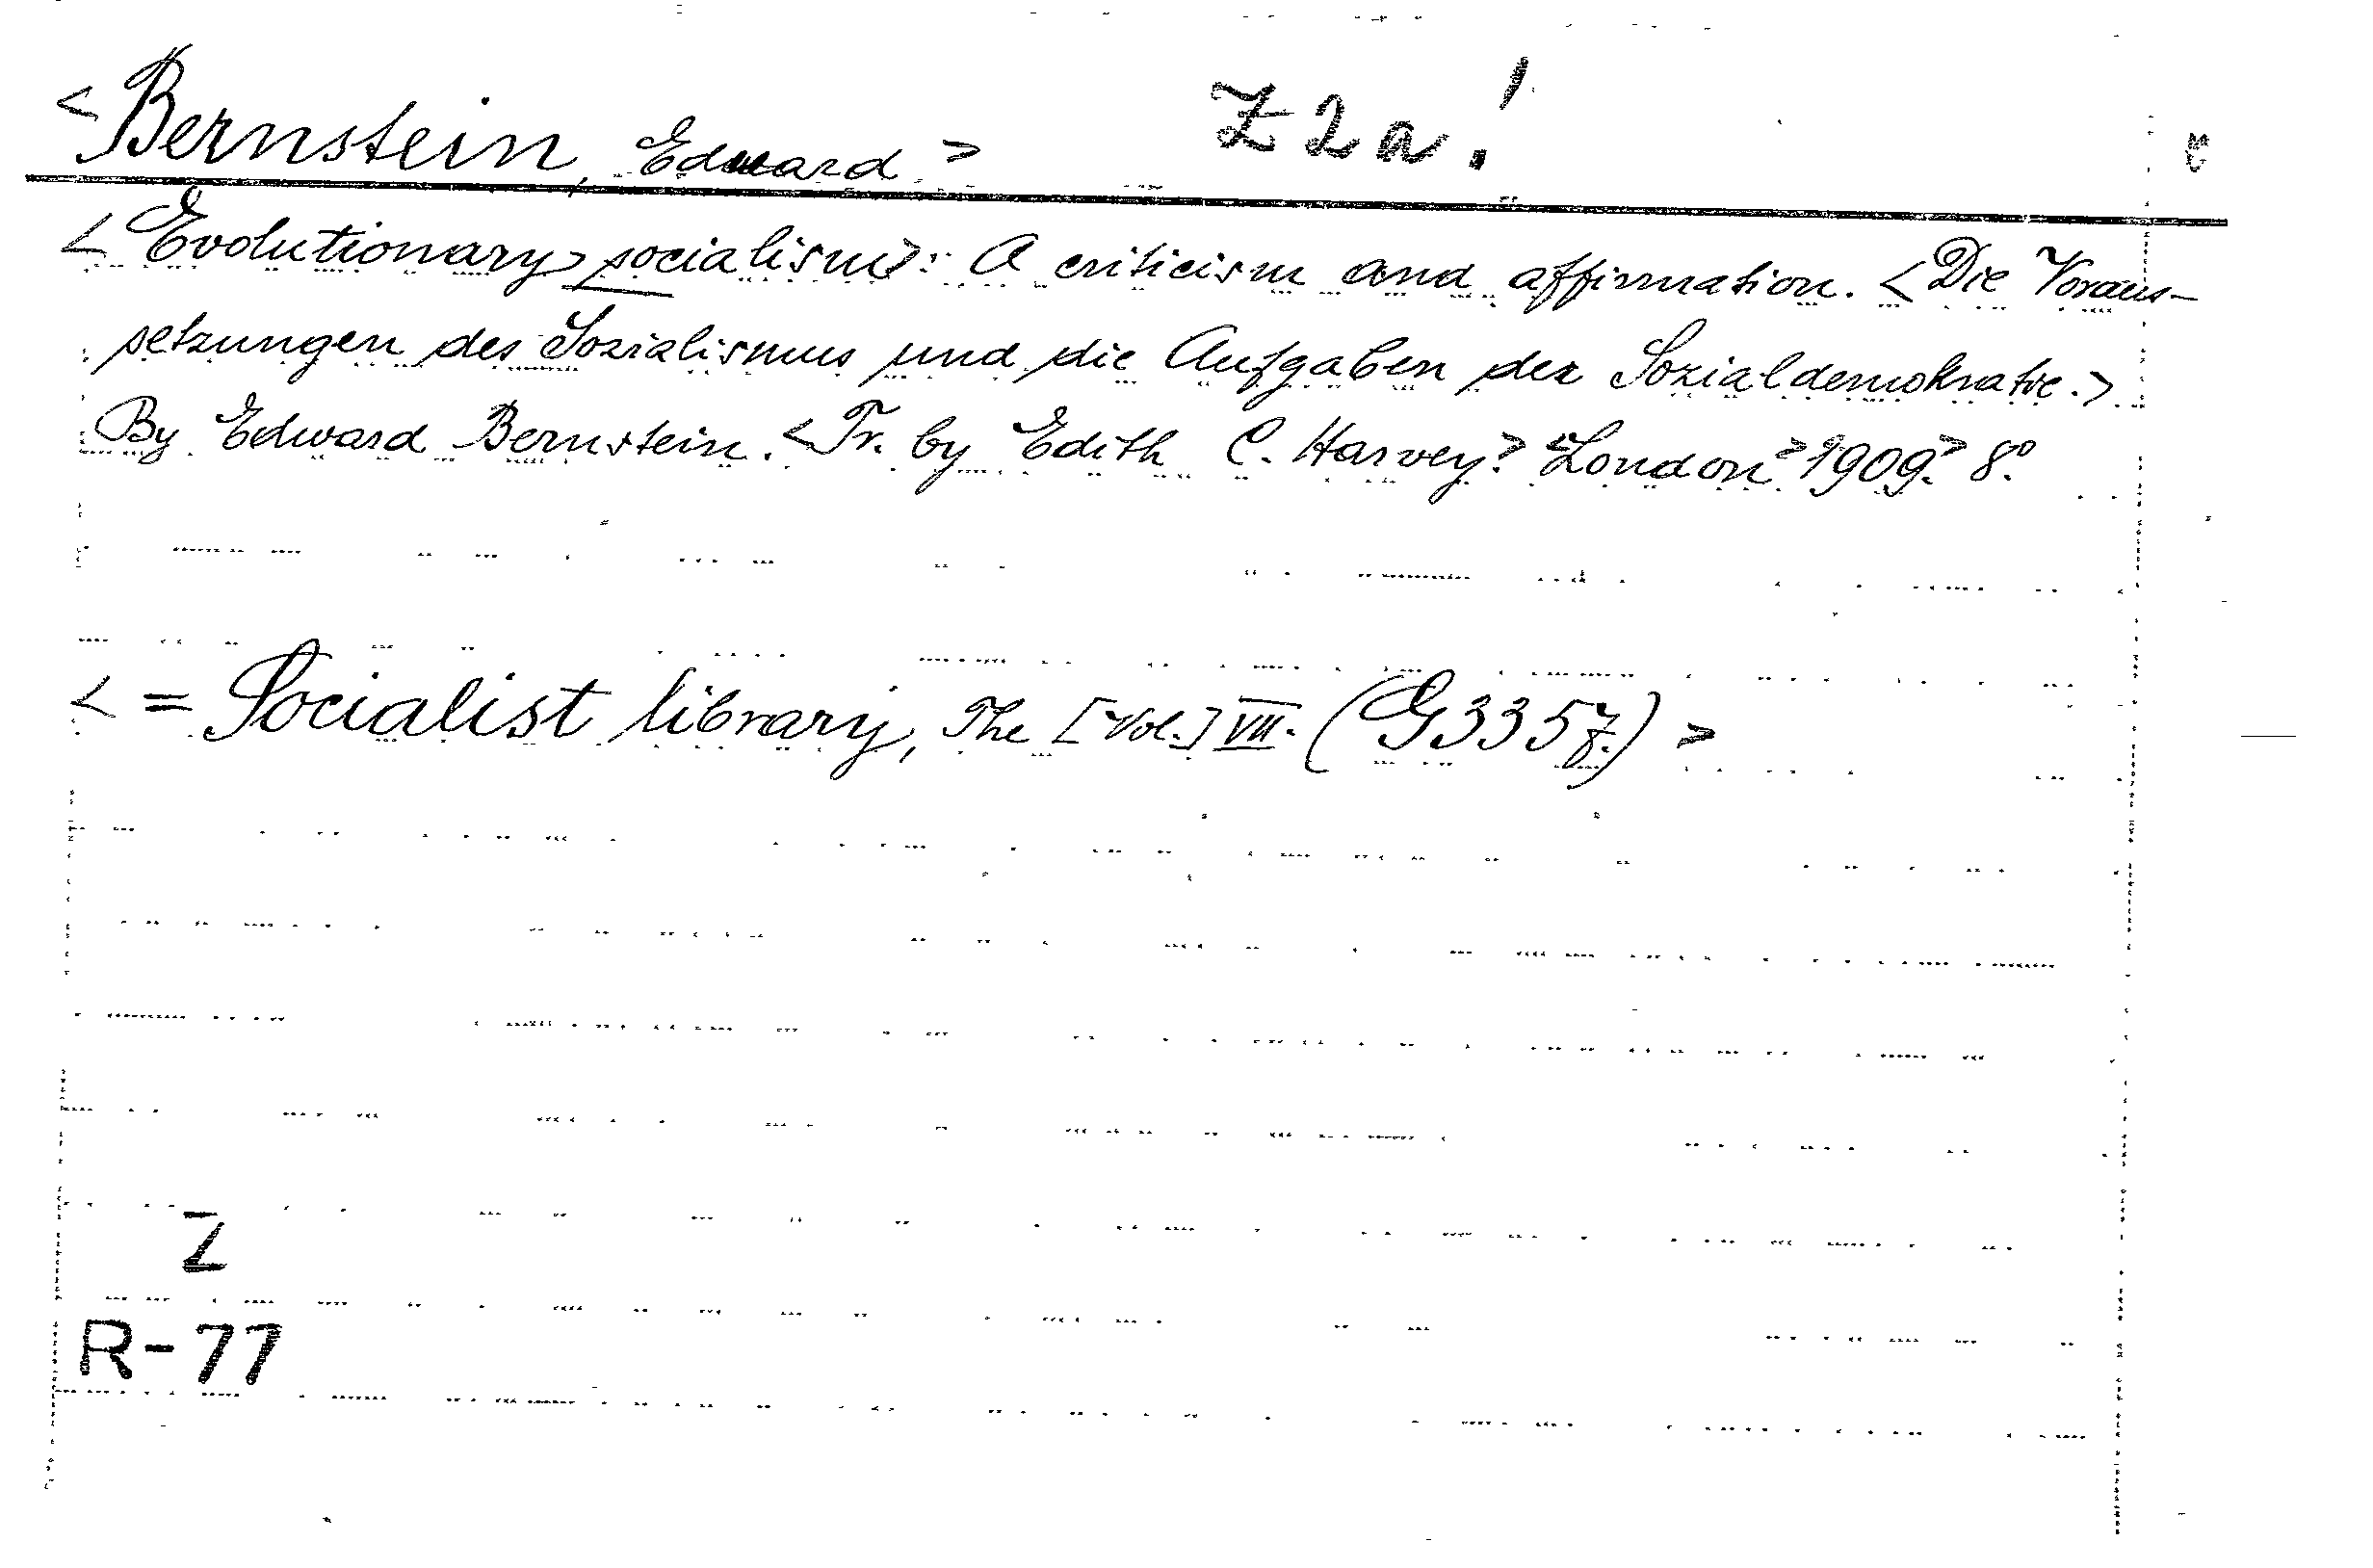 <Bernstein, Edward> Z2a!
<Evolutionary socialism>: A criticism and affirmation. <Die Voraus-
setzungen des Sozialismus und die Aufgaben der Sozialdemokratie.>
By Edward Bernstein. <Tr. by Edith C. Harvey> <London> 1909.> 8º.
<= Socialist library, The [Vol.] VII. (G335f.) >
Z
R-77